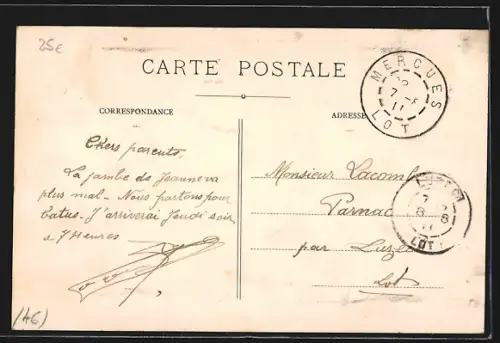 25€
CARTE POSTALE
CORRESPONDANCE
ADRESSE
MERCUES
7-8
11
LOT
Chers parents,
La jambe de Jeanne va
plus mal - Nous partons pour
Catus - J'arriverai Jeudi soir
à 7 Heures
Monsieur Lacomb
Parnac
par Luzech
Lot
LOT
(46)